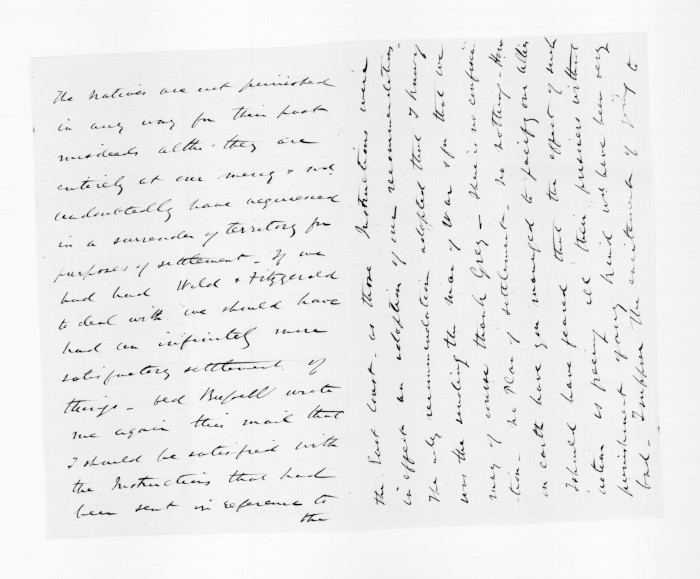 The Natives are not punished
in any way for their past
misdeeds altho' they are
entirely at our mercy & wd.
undoubtedly have acquiesced
in a surrender of territory for
purposes of settlement - If we
had had Weld & Fitzgerald
to deal with we should have
had an infinitely more
satisfactory settlement of
things - Col Russell wrote
me again this mail that
I should be satisfied with
the Instructions that had
been sent in reference to
the
the East Coast - as those Instructions were
in effect an adoption of my recommendations.
The only recommendation adopted that I know of
was the sending the Man of War & for that we
may of course thank Grey - There is no confisca-
tion - no Plan of settlement - no nothing - How
on earth have you managed to pacify our allies
I should have feared that the effect of such
action as freeing all their prisoners without
punishment of any kind wd. have been very
bad - I suppose the excitement of going to